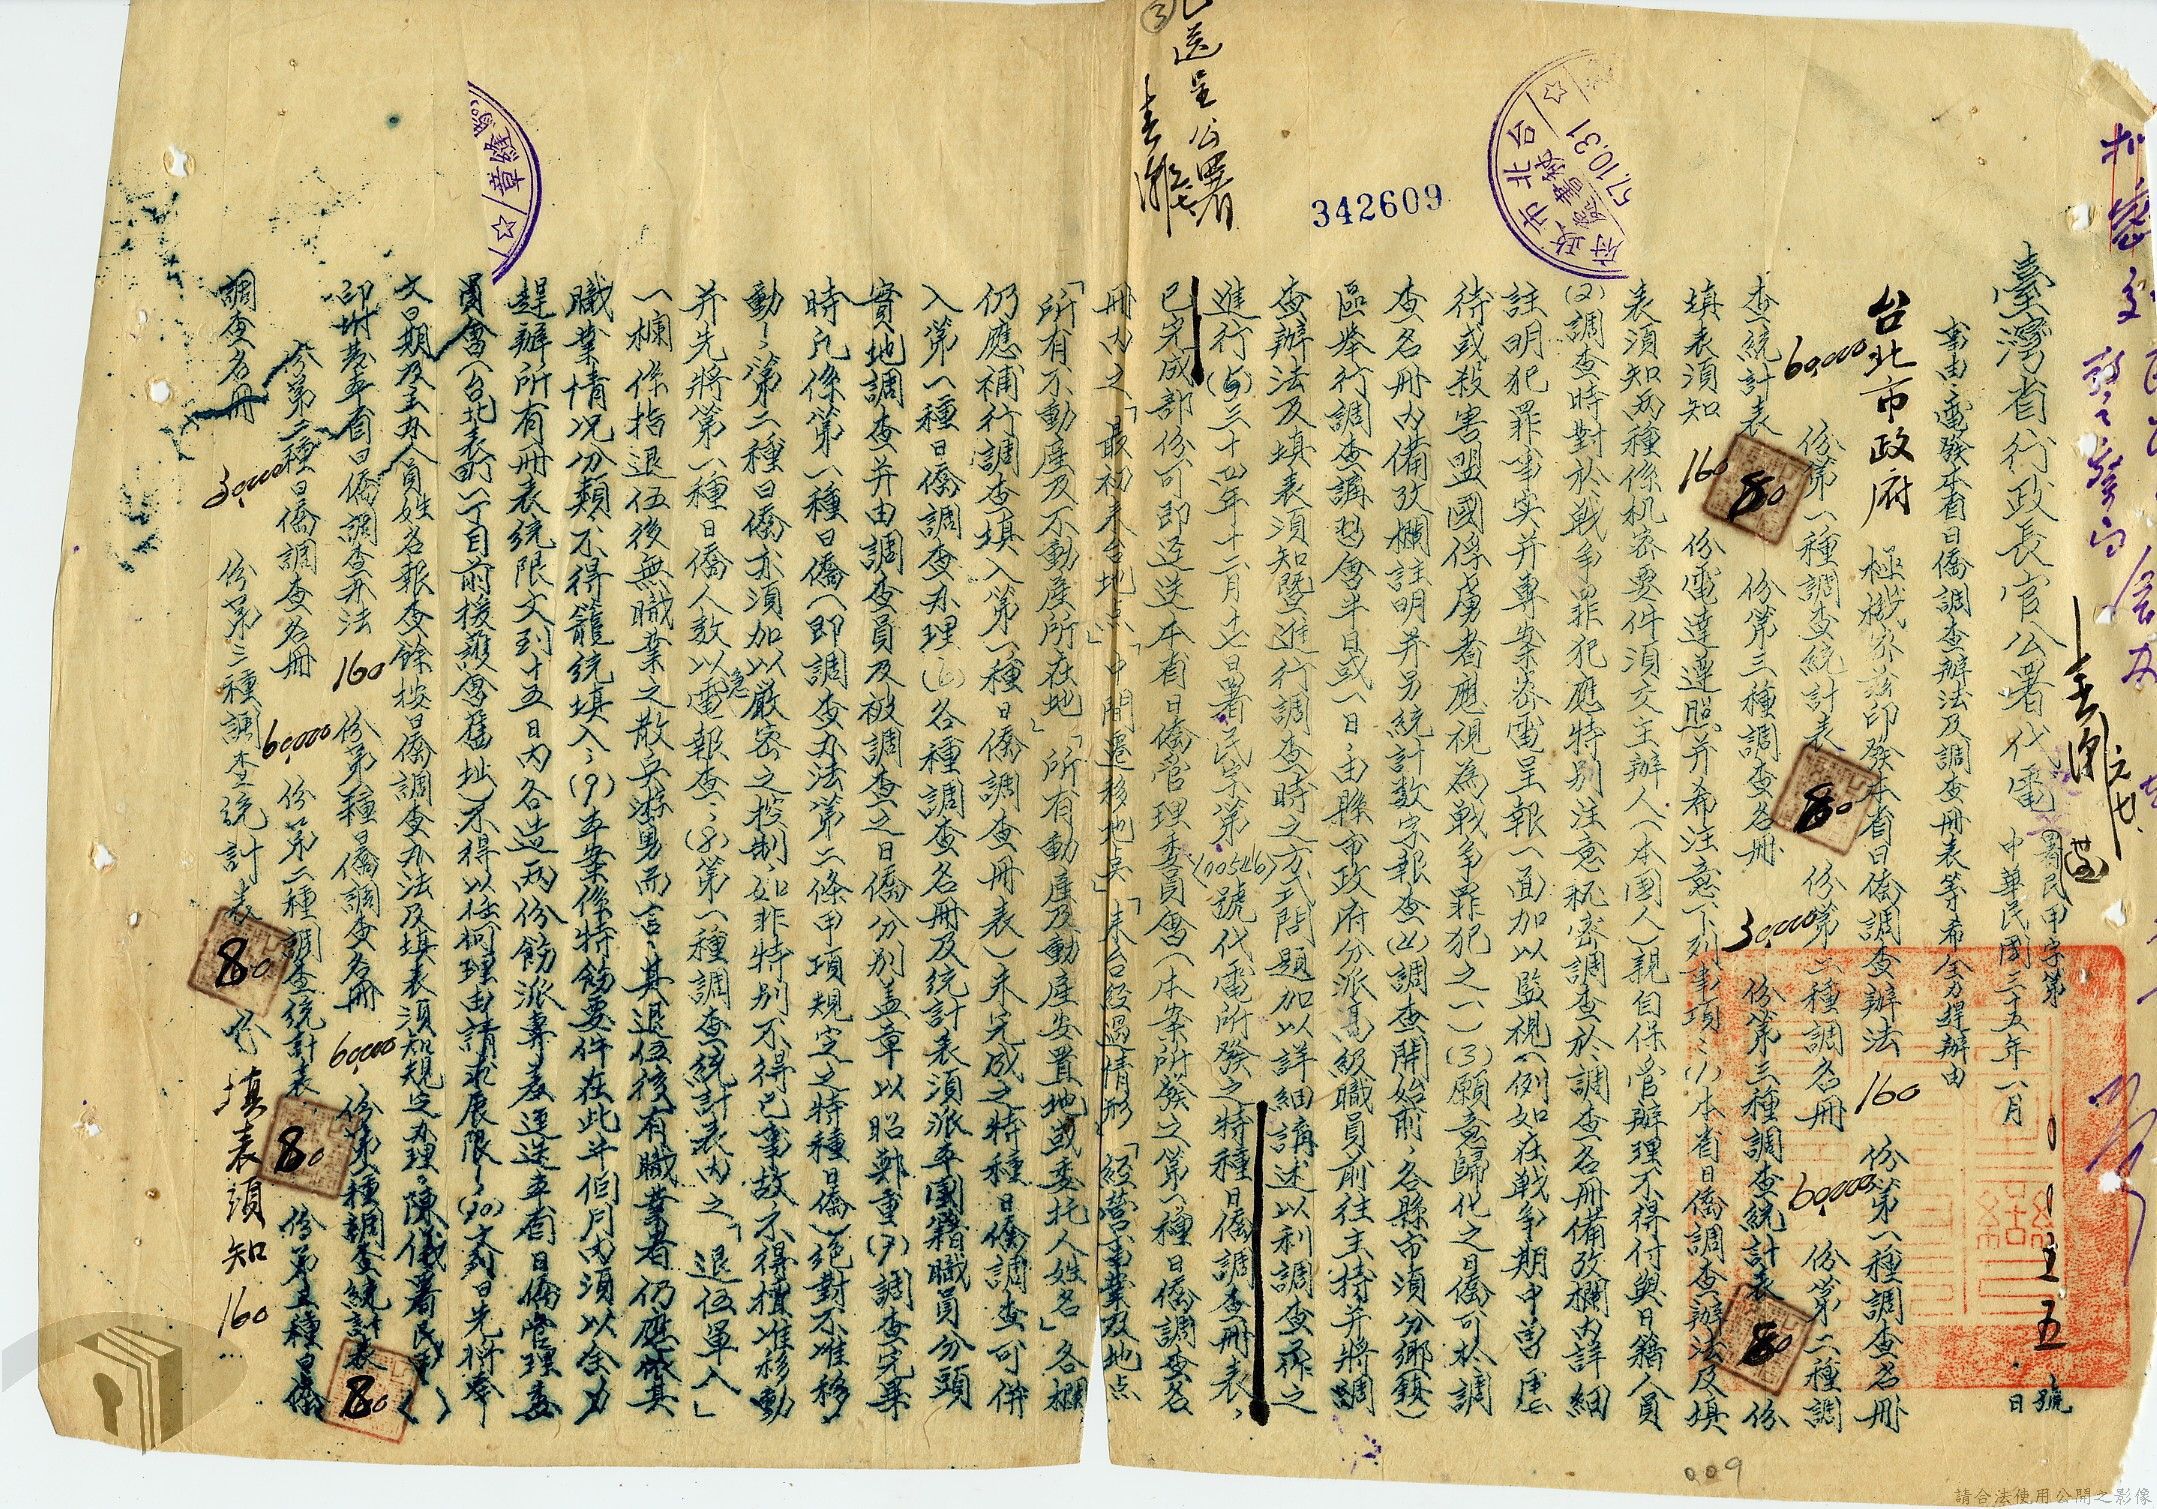 臺灣省行政長官公署代電
署民甲字第 01150 號
中華民國三十五年一月 日
事由:電發本省日僑調查辦法及調查冊表等希全力趕辦由
台北市政府 極機密茲印發本省日僑調查辦法 160 份第一種調查名冊
60,000 份第一種調查統計表 份第二種調查名冊 60,000 份第二種調
查統計表 份第三種調查名冊 30,000 份第三種調查統計表 80 份
填表須知 160 份電達遵照并希注意下列事項:(1)本省日僑調查辦法及填
表須知兩種係机密要件須交主辦人(本國人)親自保管辦理不得付與日籍人員
(2)調查時對於戰爭罪犯應特別注意秘密調查於調查名冊備攷欄內詳細
註明犯罪事实并專案密電呈報一面加以監視(例如在戰爭期中曾虐
待或殺害盟國俘虜者應視為戰爭罪犯之一)(3)願意歸化之日僑可於調
查名冊內備攷欄註明并另統計數字報查(4)調查開始前、各縣市須分鄉鎮(
區舉行調查講習會半日或一日、由縣市政府分派高級職員前往主持并將調
查辦法及填表須知暨進行調查時之方式問題加以詳細講述以利調查工作之
進行(5)三十四年十二月十七日署民宗第(00546)號代電所發之特種日僑調查冊表、
已完成部份可即逕送本省日僑管理委員會(本案所發之第一種日僑調查名
冊內之「最初來台地点」「中間遷移地点」「來台經過情形」「經營事業及地点
「所有不動產及不動產所在地」「所有動產及動產安置地或委托人姓名」各欄
仍應補行調查填入第一種日僑調查冊表)未完成之特種日僑調查可併
入第一種日僑調查办理(6)各種調查名冊及統計表須派本國籍職員分頭
實地調查并由調查員及被調查之日僑分別盖章以昭鄭重(7)調查完畢
時凡係第一種日僑(即調查办法第二條甲項規定之特種日僑)絕對不准移
動、第二種日僑亦須加以嚴密之控制、如非特別不得已事故、不得擅准移動
并先將第一種日僑人數以急電報查、(8)第一種調查統計表內之「退伍軍人」
一欄係指退伍後無職業之散兵游勇而言、其退伍後有職業者仍應依其
職業情況分類、不得籠統填入、(9)本案係特飭要件在此半個月內須以全力
趕辦所有冊表統限文到十五日內各造兩份飭派專差逕送本省日僑管理委
員會(台北表町一丁目前援護會舊址)不得以任何理由請求展限、(10)文到日先將奉
文日期及主办人員姓名報查餘按日僑調查办法及填表須知規定办理。陳儀署民甲( )
印附發本省日僑調查办法 160 份第一種日僑調查名冊 60,000 份第一種調查統計表 80
份第二種日僑調查名冊 60,000 份第二種調查統計表 80 份第三種日僑
調查名冊 30,000 份第三種調查統計表 80 份 填表須知 160
342609
台北市政府
57.10.31
送呈公署
009
請合法使用公開之影像